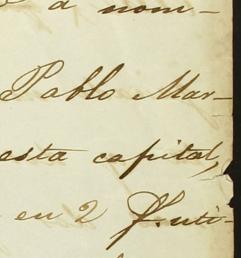 á nom-
Pablo Mar-
esta capital,
en 2